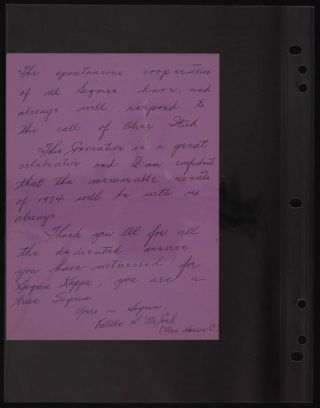 The spontaneous cooperation
of all Sigmas have, and
always will respond to
the call of
This is a great
celebration and I am confident
that the memorable events
of 1974 will be with us
always.
Thank you all for all
the dedicated service
you have witnessed for
Sigma Kappa, you are a
true Sigma
Yours in Sigma,
(Mrs.